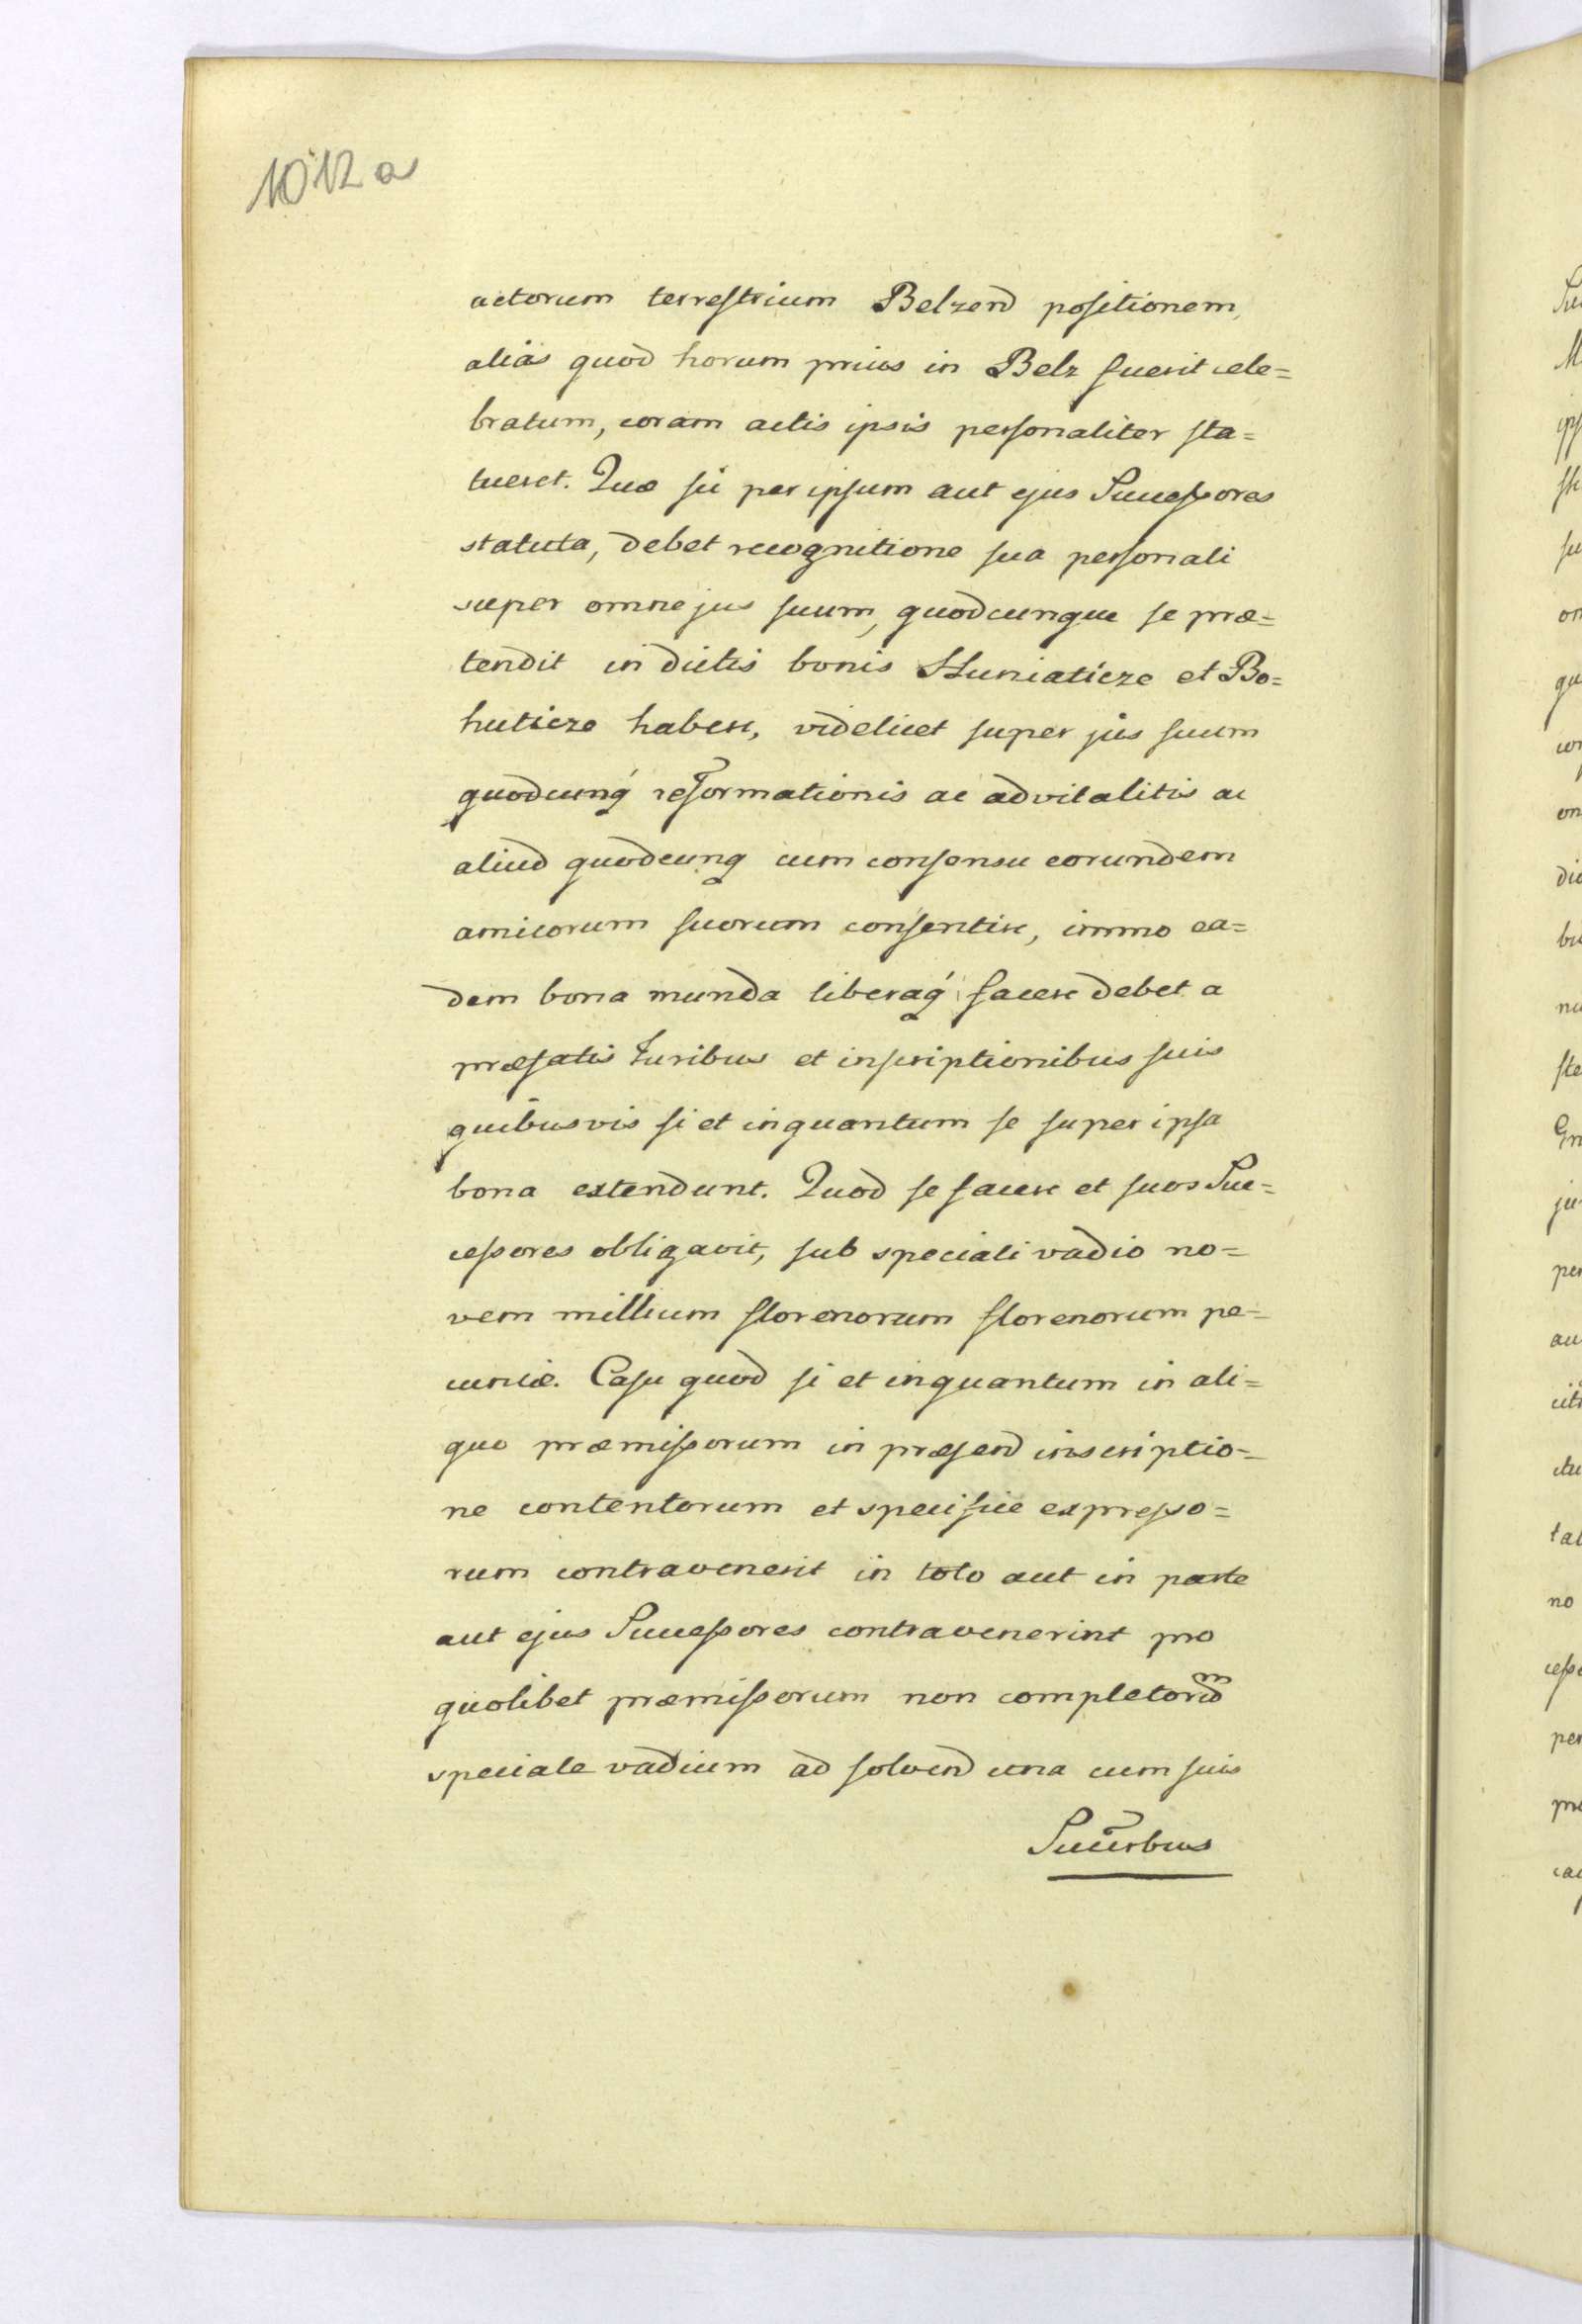 1012 a
actorum terrestrium Belzend positionem,
alias quod horum prius in Belz fuerit cele=
bratum, coram actis ipsis personaliter sta=
tueret. Quæ sic per ipsum aut ejus Successores
statuta, debet recognitione sua personali
super omne jus suum, quodcunque se præ=
tendit in dictis bonis Huniaticze et Bo=
huticze habere, videlicet super jus suum
quodcunq́ reformationis ac advitalitis ac
aliud quodcunq cum consensu eorundem
amicorum suorum consentire, immo ea=
dem bona munda liberaq́ facere debet a
præfatis Juribus et inscriptionibus suis
quibusvis si et inquantum se super ipsa
bona extendunt. Quod se facere et suos Suc=
cessores obligavit, sub speciali vadio no=
vem millium florenorum florenorum pe=
cuniæ. Casu quod si et inquantum in ali=
quo præmissorum in præsend inscriptio=
ne contentorum et specifice expresso=
rum contravenerit in toto aut in parte
aut ejus Successores contravenerint pro
quolibet præmissorum non completorum
speciale vadium ad solvend una cum suis
Succrbus